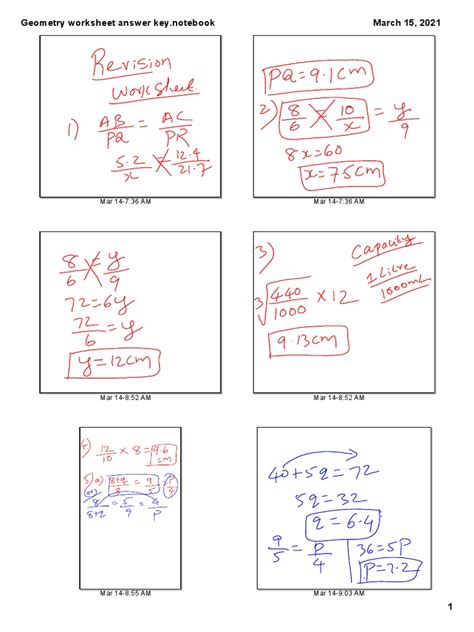 Geometry worksheet answer key.notebook
March 15, 2021
Revision
Worksheet
1) AB/PQ = AC/PR
5.2/x = 12.4/21.7
Mar 14-7:36 AM
PQ = 9.1cm
2) 8/6 = 10/x = y/9
8x=60
x=7.5cm
Mar 14-7:36 AM
8/6 = y/9
72=6y
72/6 = y
y=12cm
Mar 14-8:52 AM
3)
Capacity
1 Litre
1000mL
3√440/1000 × 12
9.13cm
Mar 14-8:52 AM
4) 12/10 × 8 = 9.6 cm
5) a) 8+q/8 = 9/5 = P/4
(or)
8/8+q = 5/9 = 4/P
Mar 14-8:55 AM
40+5q = 72
5q = 32
q = 6.4
9/5 = P/4
36=5P
P=7.2
Mar 14-9:03 AM
1